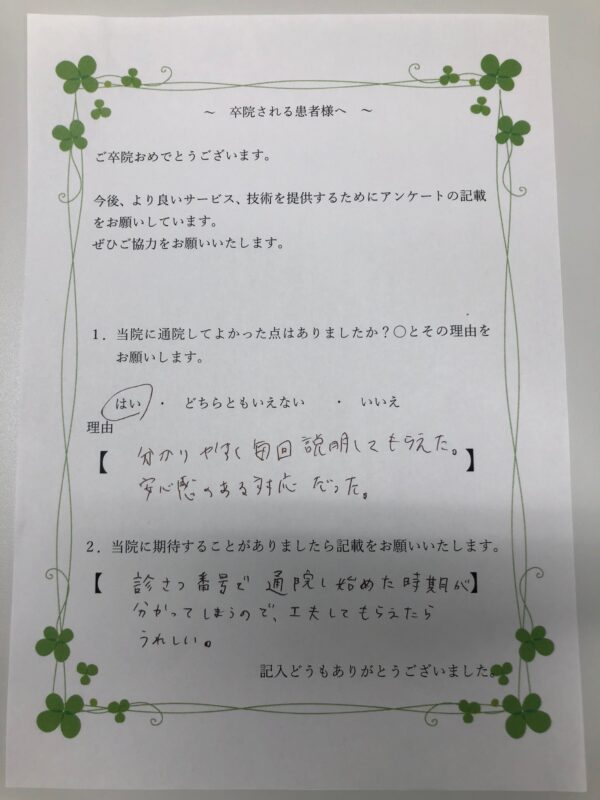 ～ 卒院される患者様へ ～
ご卒院おめでとうございます。
今後、より良いサービス、技術を提供するためにアンケートの記載
をお願いしています。
ぜひご協力をお願いいたします。
1．当院に通院してよかった点はありましたか？〇とその理由を
お願いします。
はい ・ どちらともいえない ・ いいえ
理由
【 分かりやすく毎回説明してもらえた。 】
安心感のある対応だった。
2．当院に期待することがありましたら記載をお願いいたします。
【 診さつ番号で通院し始めた時期が 】
分かってしまうので、工夫してもらえたら
うれしい。
記入どうもありがとうございました。